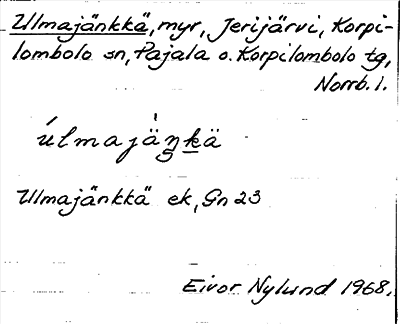 Ulmajänkkä, myr, Jerijärvi, Korpi-
lombolo sn, Pajala o. Korpilombolo tg,
Norrb. l.
úlmajä̀ŋḵä
Ulmajänkkä ek, Gn 23
Eivor Nylund 1968.